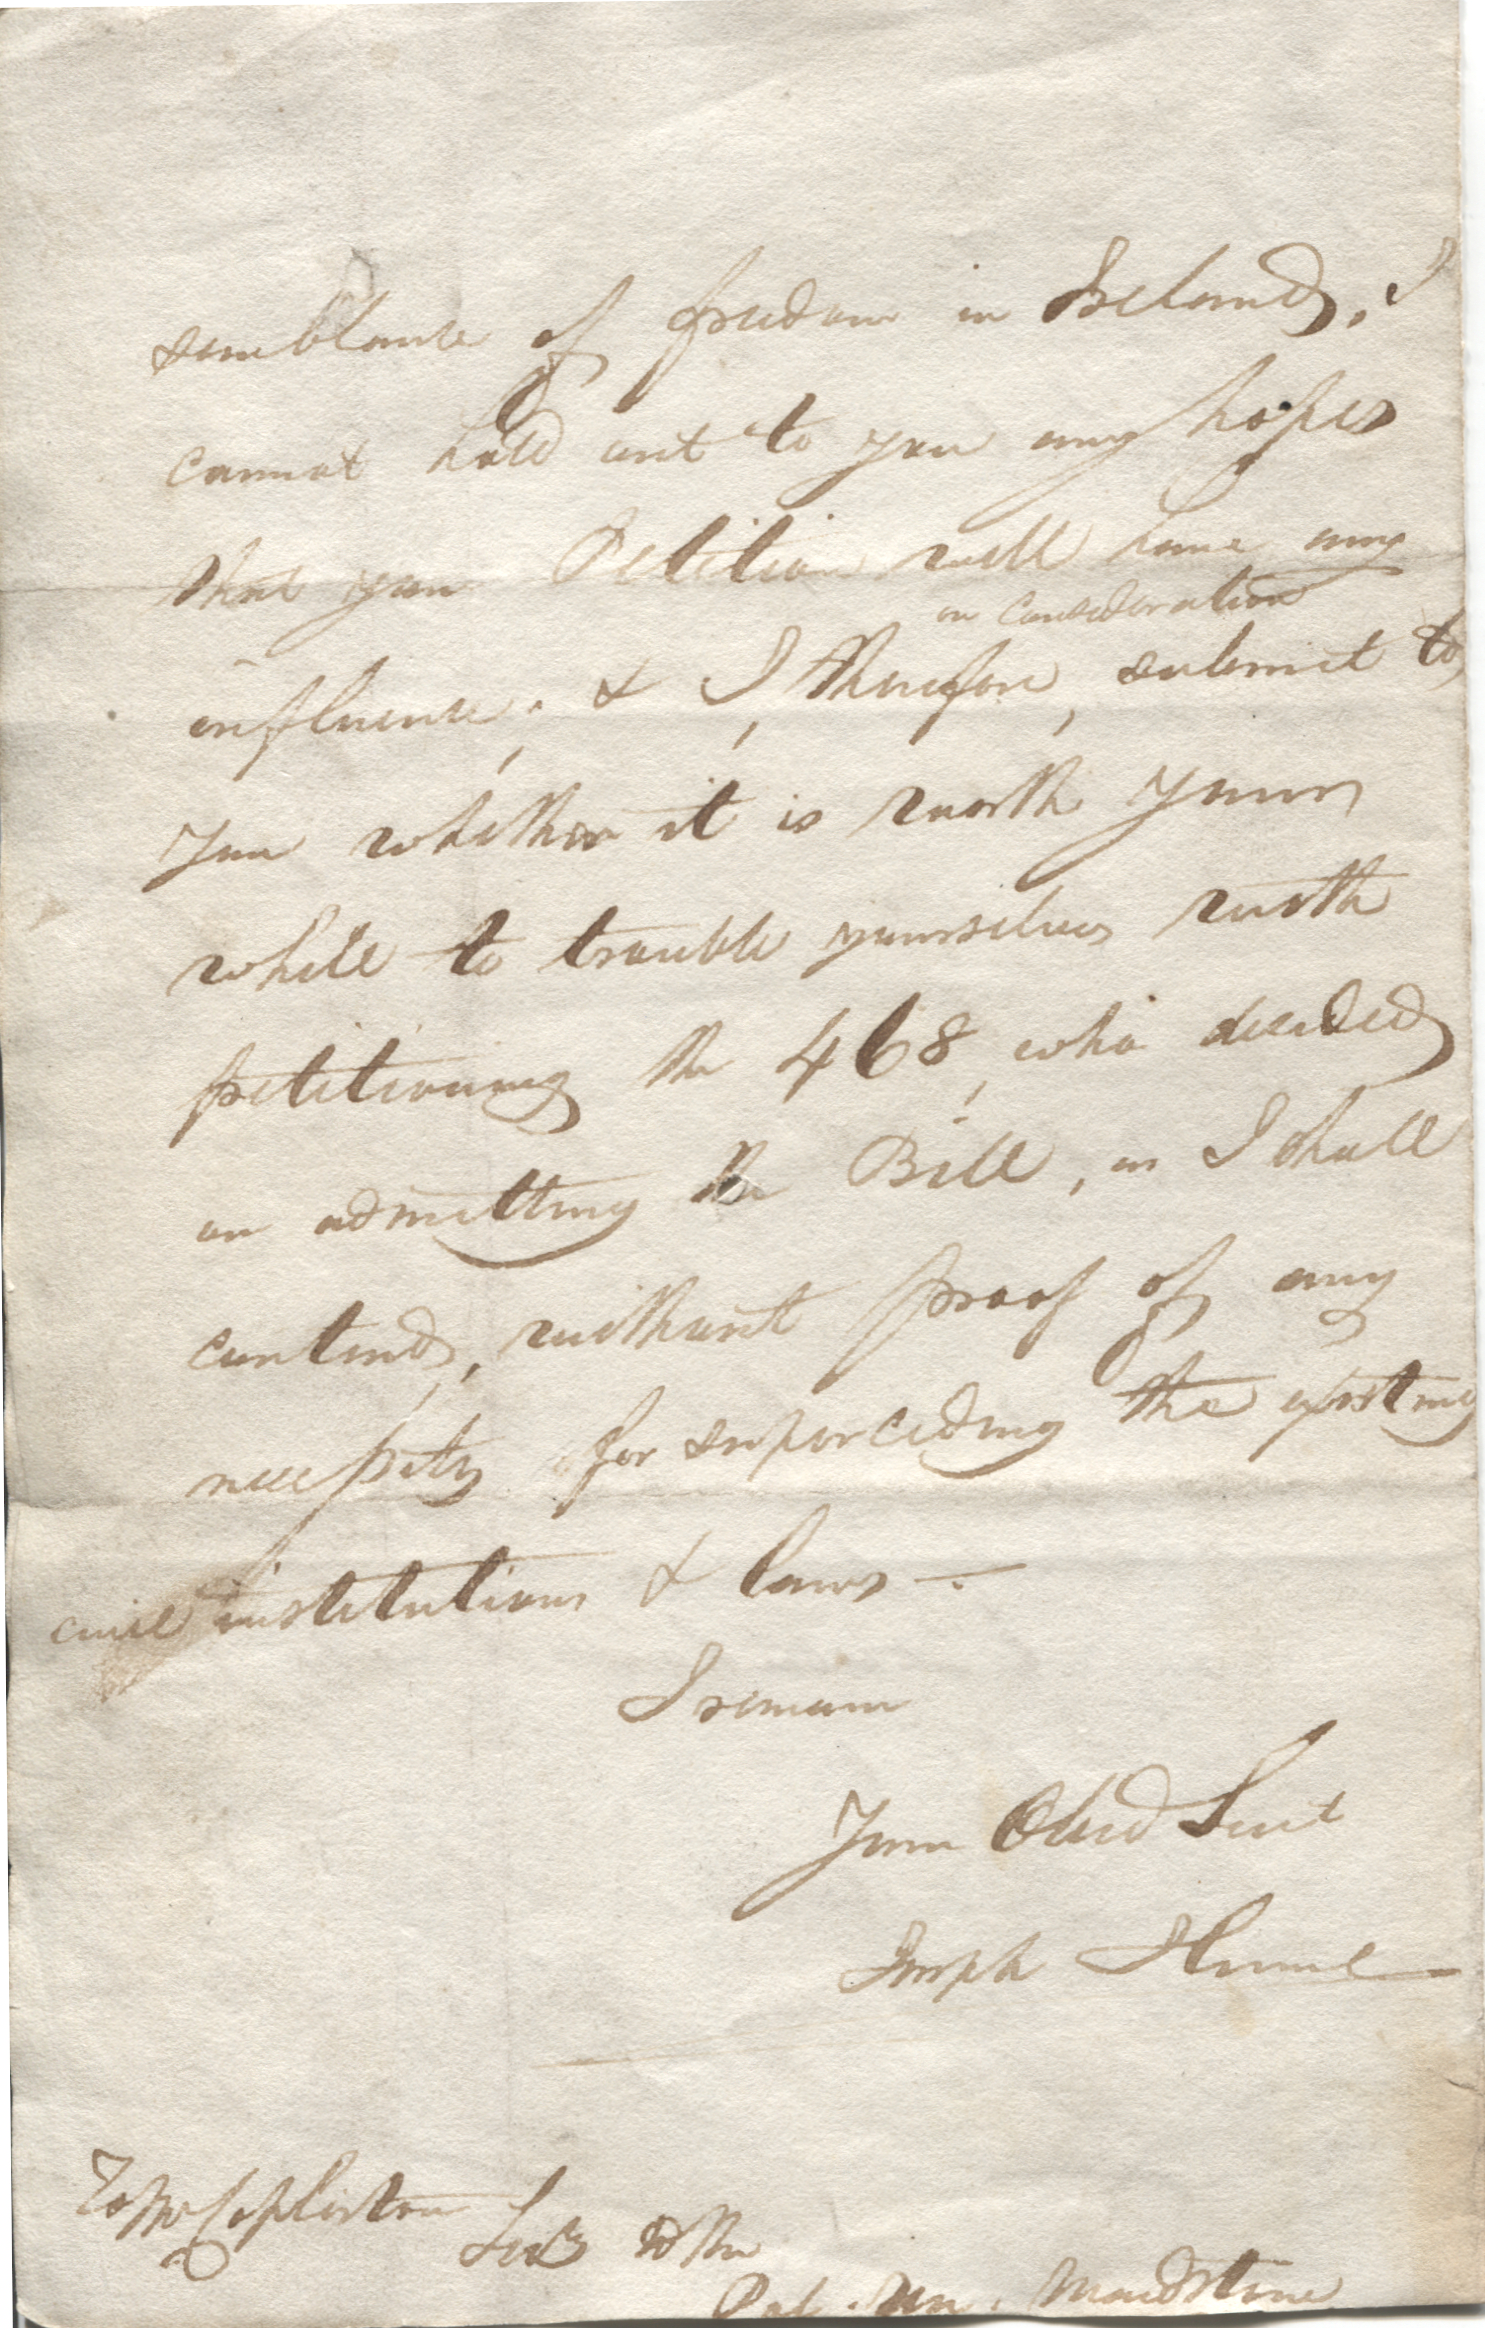 semblance of freedom in Ireland, I
cannot hold out to you any hopes
that your Petition will have any
on consideration
influence, & I, therefore, submit to
you whether it is worth your
while to trouble yourselves with
petitioning the 468, who decided
on admitting the Bill, as I shall
contend, without proof of any
necessity for superceding the existing
civil institutions & laws —
I remain
Your Obed Sert
Joseph Hume
To Mr Copleston
Secy to the
Pol. Un. Maidstone